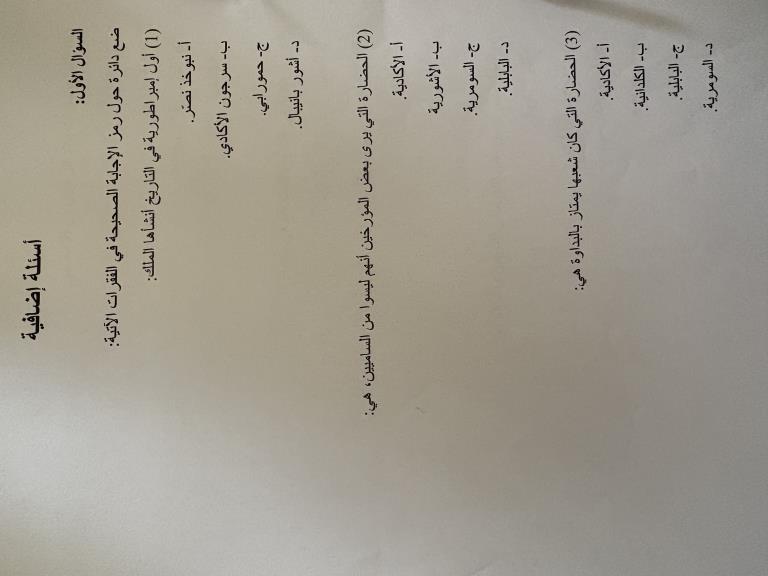 أسئلة إضافية
السؤال الأول:
ضع دائرة حول رمز الإجابة الصحيحة في الفقرات الآتية:
(1) أول إمبراطورية في التاريخ أنشأها الملك:
أ- نبوخذ نصر.
ب- سرجون الأكادي.
ج- حمورابي.
د- أشور بانيبال.
(2) الحضارة التي يرى بعض المؤرخين أنهم ليسوا من الساميين، هي:
أ- الأكادية.
ب- الأشورية
ج- السومرية.
د- البابلية.
(3) الحضارة التي كان شعبها يمتاز بالبداوة هي:
أ- الأكادية.
ب- الكلدانية.
ج- البابلية.
د- السومرية.